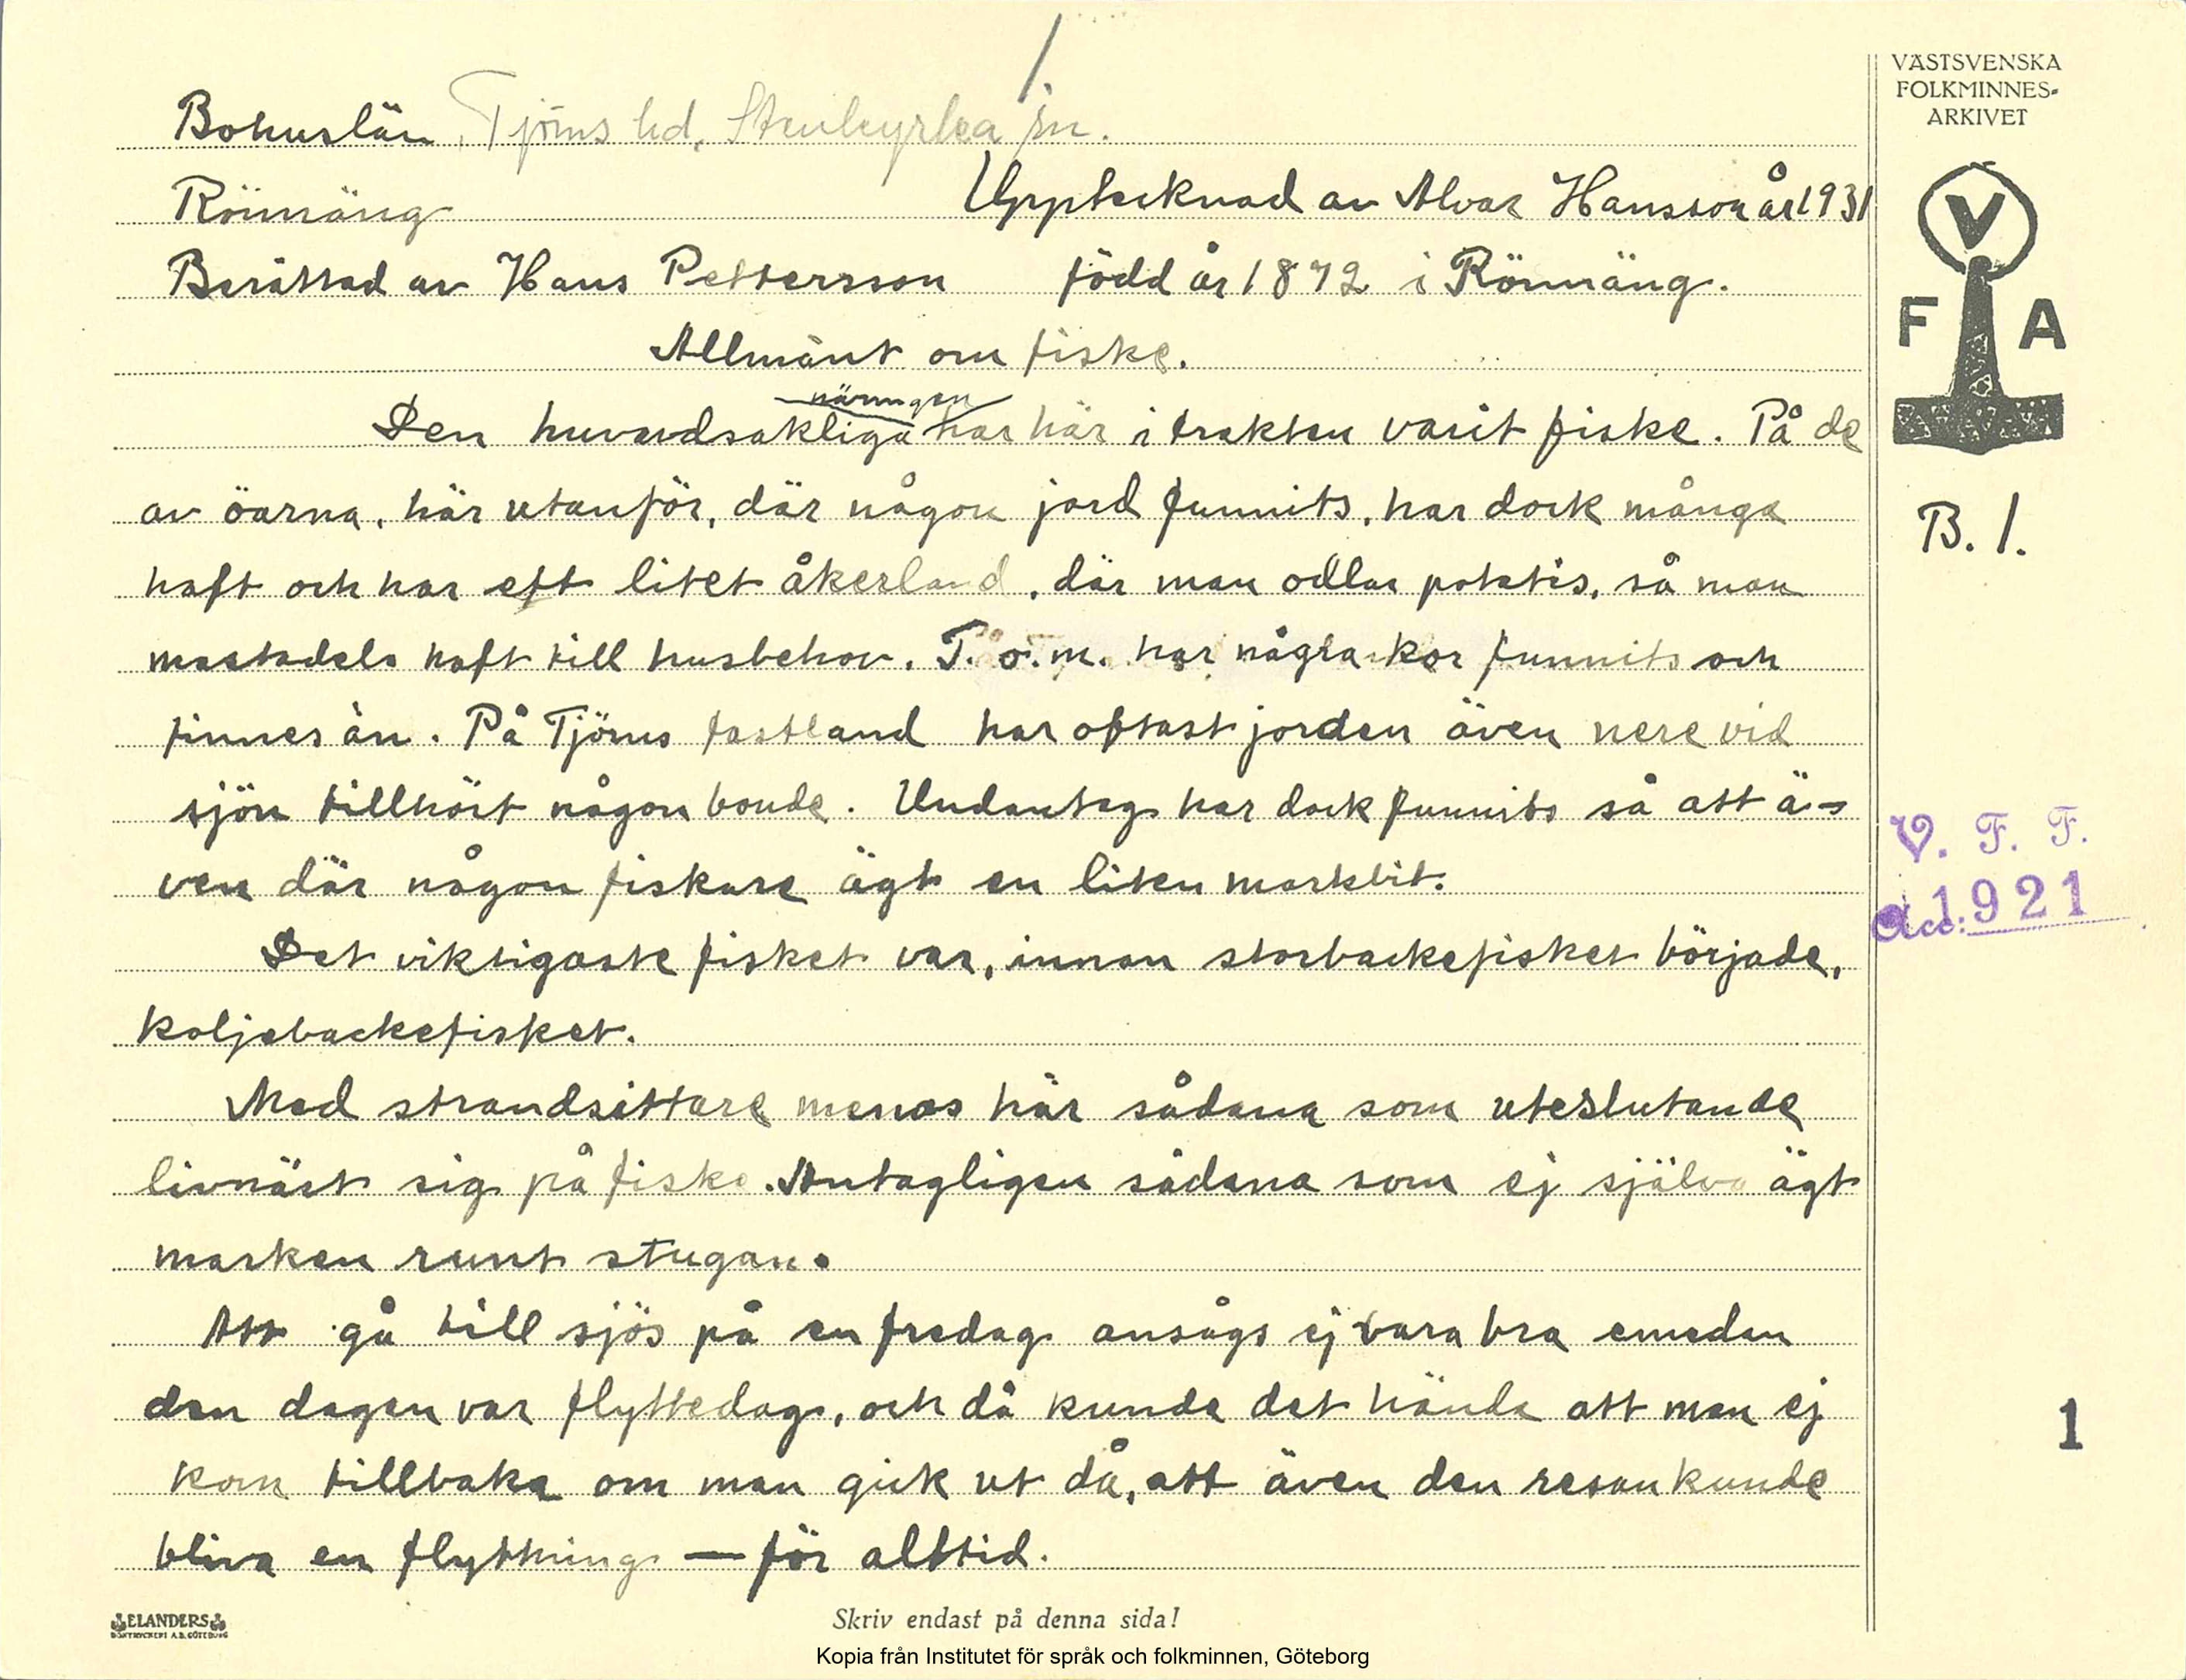 1.
Bohuslän, Tjörns hd, Stenkyrka sn.
Rönnäng Upptecknad av Alvar Hansson år 1931
Berättad av Hans Pettersson född år 1872 i Rönnäng.
Allmänt om fiske.
näringen
Den huvudsakliga har här i trakten varit fiske. På de
av öarna, här utanför, där någon jord funnits, har dock många
haft och har ett litet åkerland, där man odlar potatis, så man
mestadels haft till husbehov. T.o.m. har några kor funnits och
finnes än. På Tjörns fastland har oftast jorden även nere vid
sjön tillhört någon bonde. Undantag har dock funnits så att ä-
ven där någon fiskare ägt en liten markbit.
Det viktigaste fisket var, innan storbackefisket började,
koljebackefisket.
Med strandsittare menas här sådana som uteslutande
livnärt sig på fiske. Antagligen sådana som ej själva ägt
marken runt stugan.
Att gå till sjös på en fredag ansågs ej vara bra emedan
den dagen var flyttedag, och då kunde det hända att man ej
kom tillbaka om man gick ut då, att även den resan kunde
bliva en flyttning — för alltid.
VÄSTSVENSKA
FOLKMINNES-
ARKIVET
V
F A
B. 1.
V. F. F.
Acc. 1921
1
ELANDERS
BOKTRYCKERI A.B. GÖTEBORG
Skriv endast på denna sida!
Kopia från Institutet för språk och folkminnen, Göteborg